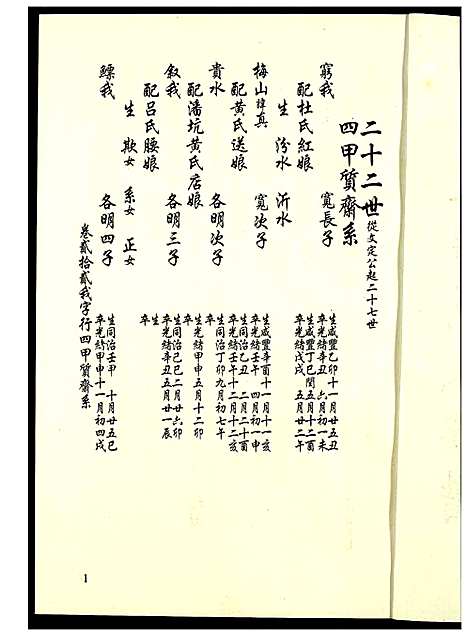 二十二世 從文定公起二十七世
四甲質齋系
窮我 寬長子 生咸豐乙卯十一月廿五丑 卒光緒辛丑 六月初一未
配杜氏紅娘 生咸豐丁巳閏五月十二酉 卒光緒戊戌 五月廿二午
生 汾水 沂水
梅山諱真 寬次子 生咸豐辛酉十一月十一亥 卒光緒壬午 四月初一申
配黃氏送娘 生同治乙丑 二月二十酉 卒光緒壬午十二月十二亥
貴水 各明次子 生同治丁卯九月初七午 卒
配潘坑黃氏店娘 生光緒甲申五月十二卯 卒
敍我 各明三子 生同治己巳二月廿六卯 卒光緒辛丑五月廿一辰
配呂氏腰娘 生 卒
生 欺女 系女 正女
鏢我 各明四子 生同治壬申 十月廿五巳 卒光緒甲申十一月初四戌
卷貳拾貳我字行四甲質齋系
1